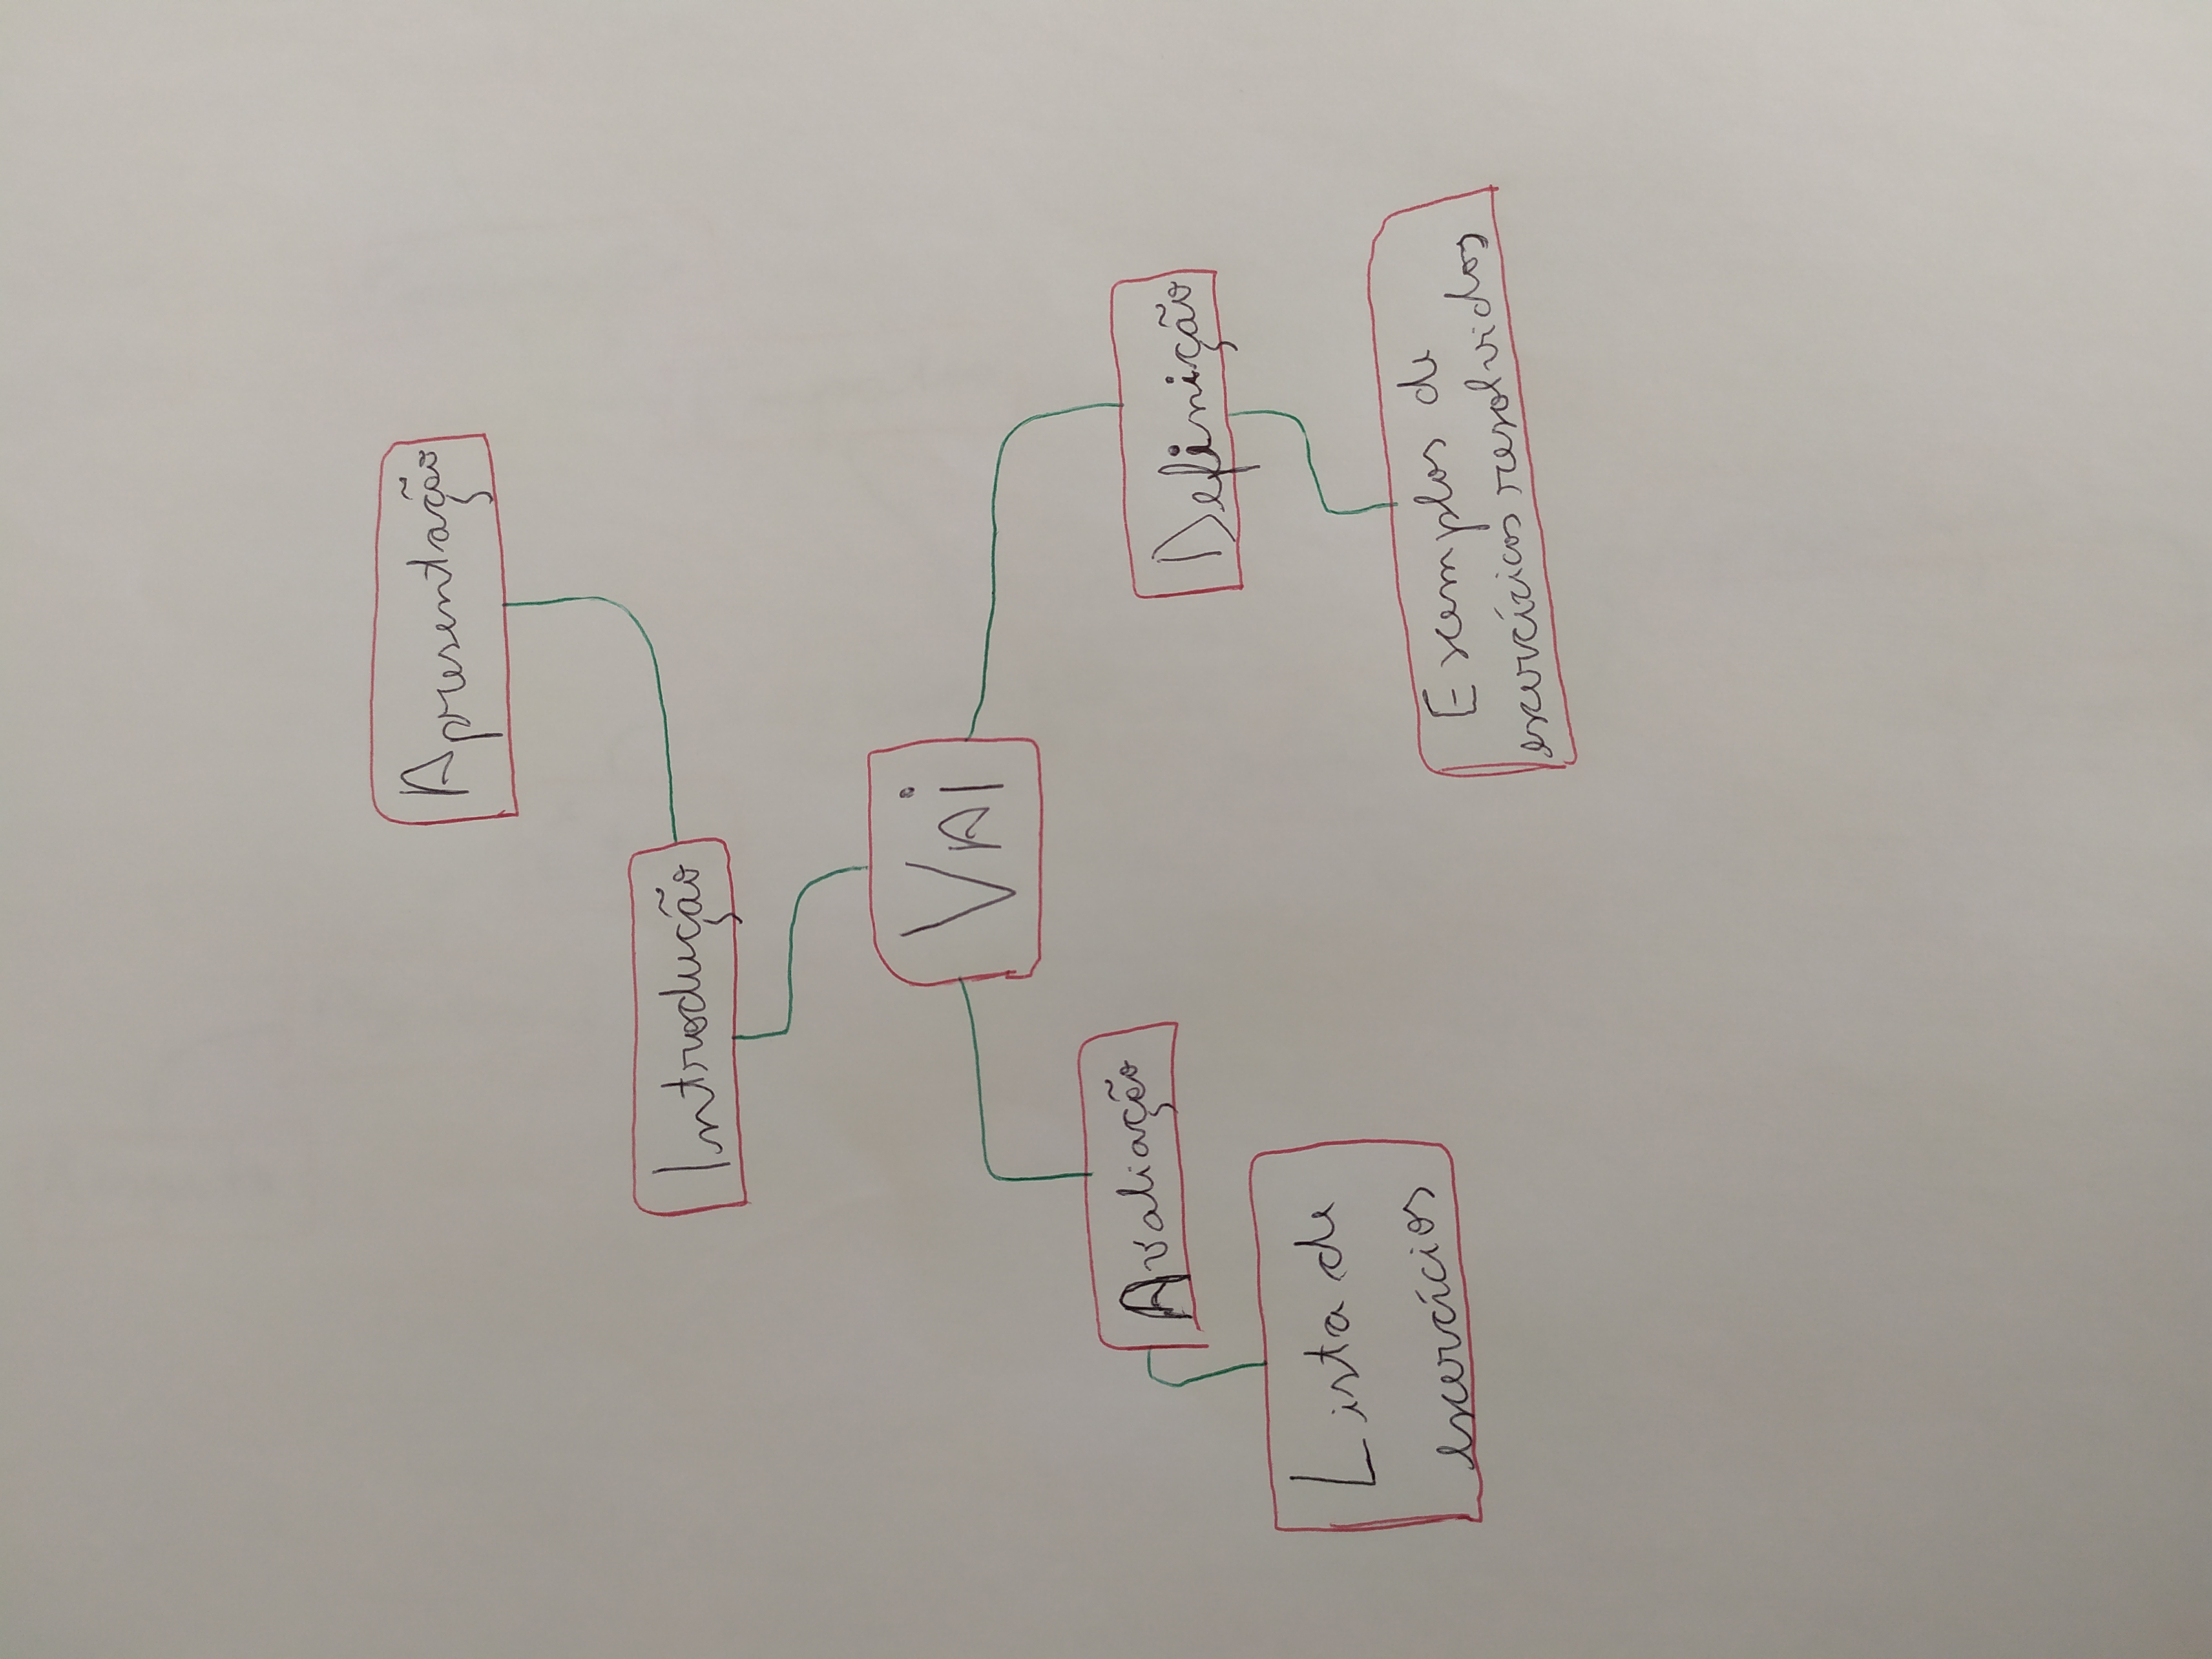 Apresentação
Introdução
VAi
Avaliação
Definição
Lista de
exercícios
Exemplos de
exercícicos resolvidos